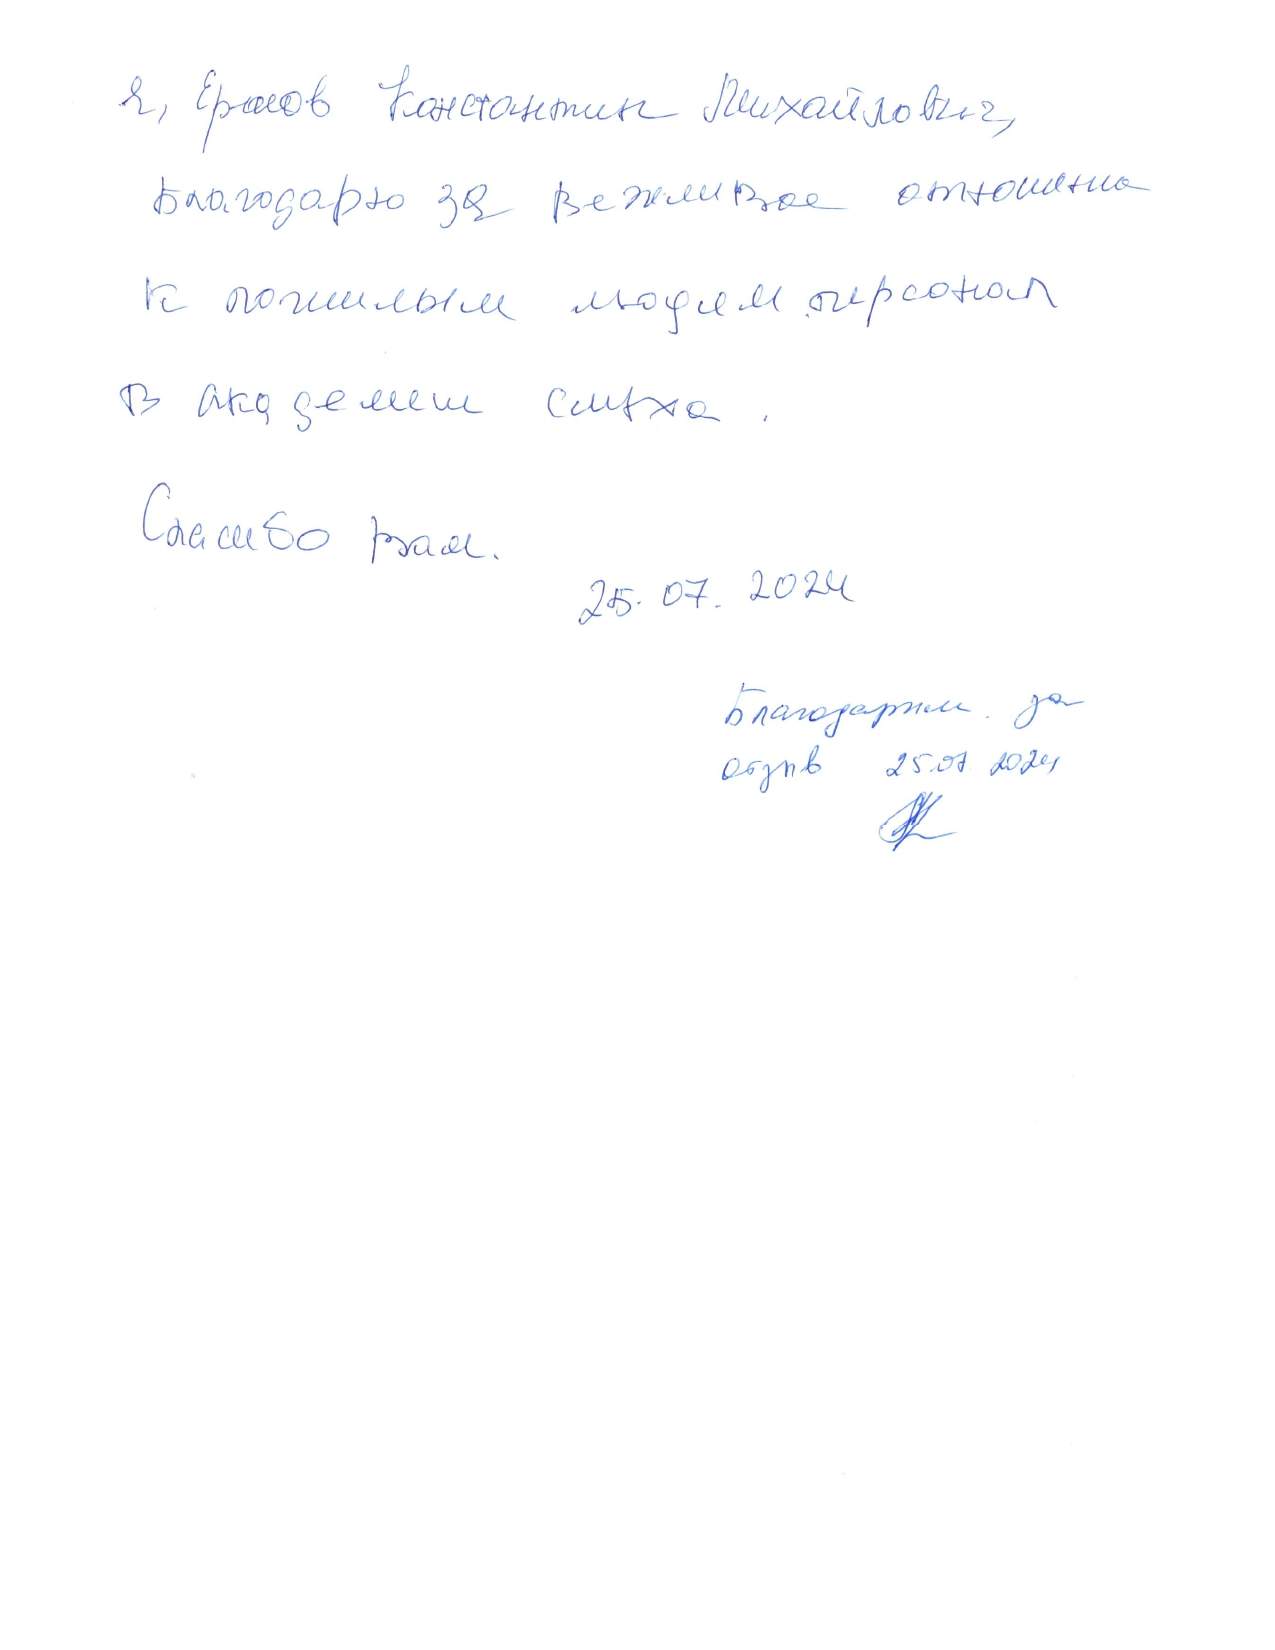 Я, Ермов Константин Михайлович,
Благодарю за вежливое отношение
к пожилым людям персонал
в академии слуха.
Спасибо вам.
25.07.2024
Благодарим за
отзыв 25.07 2024